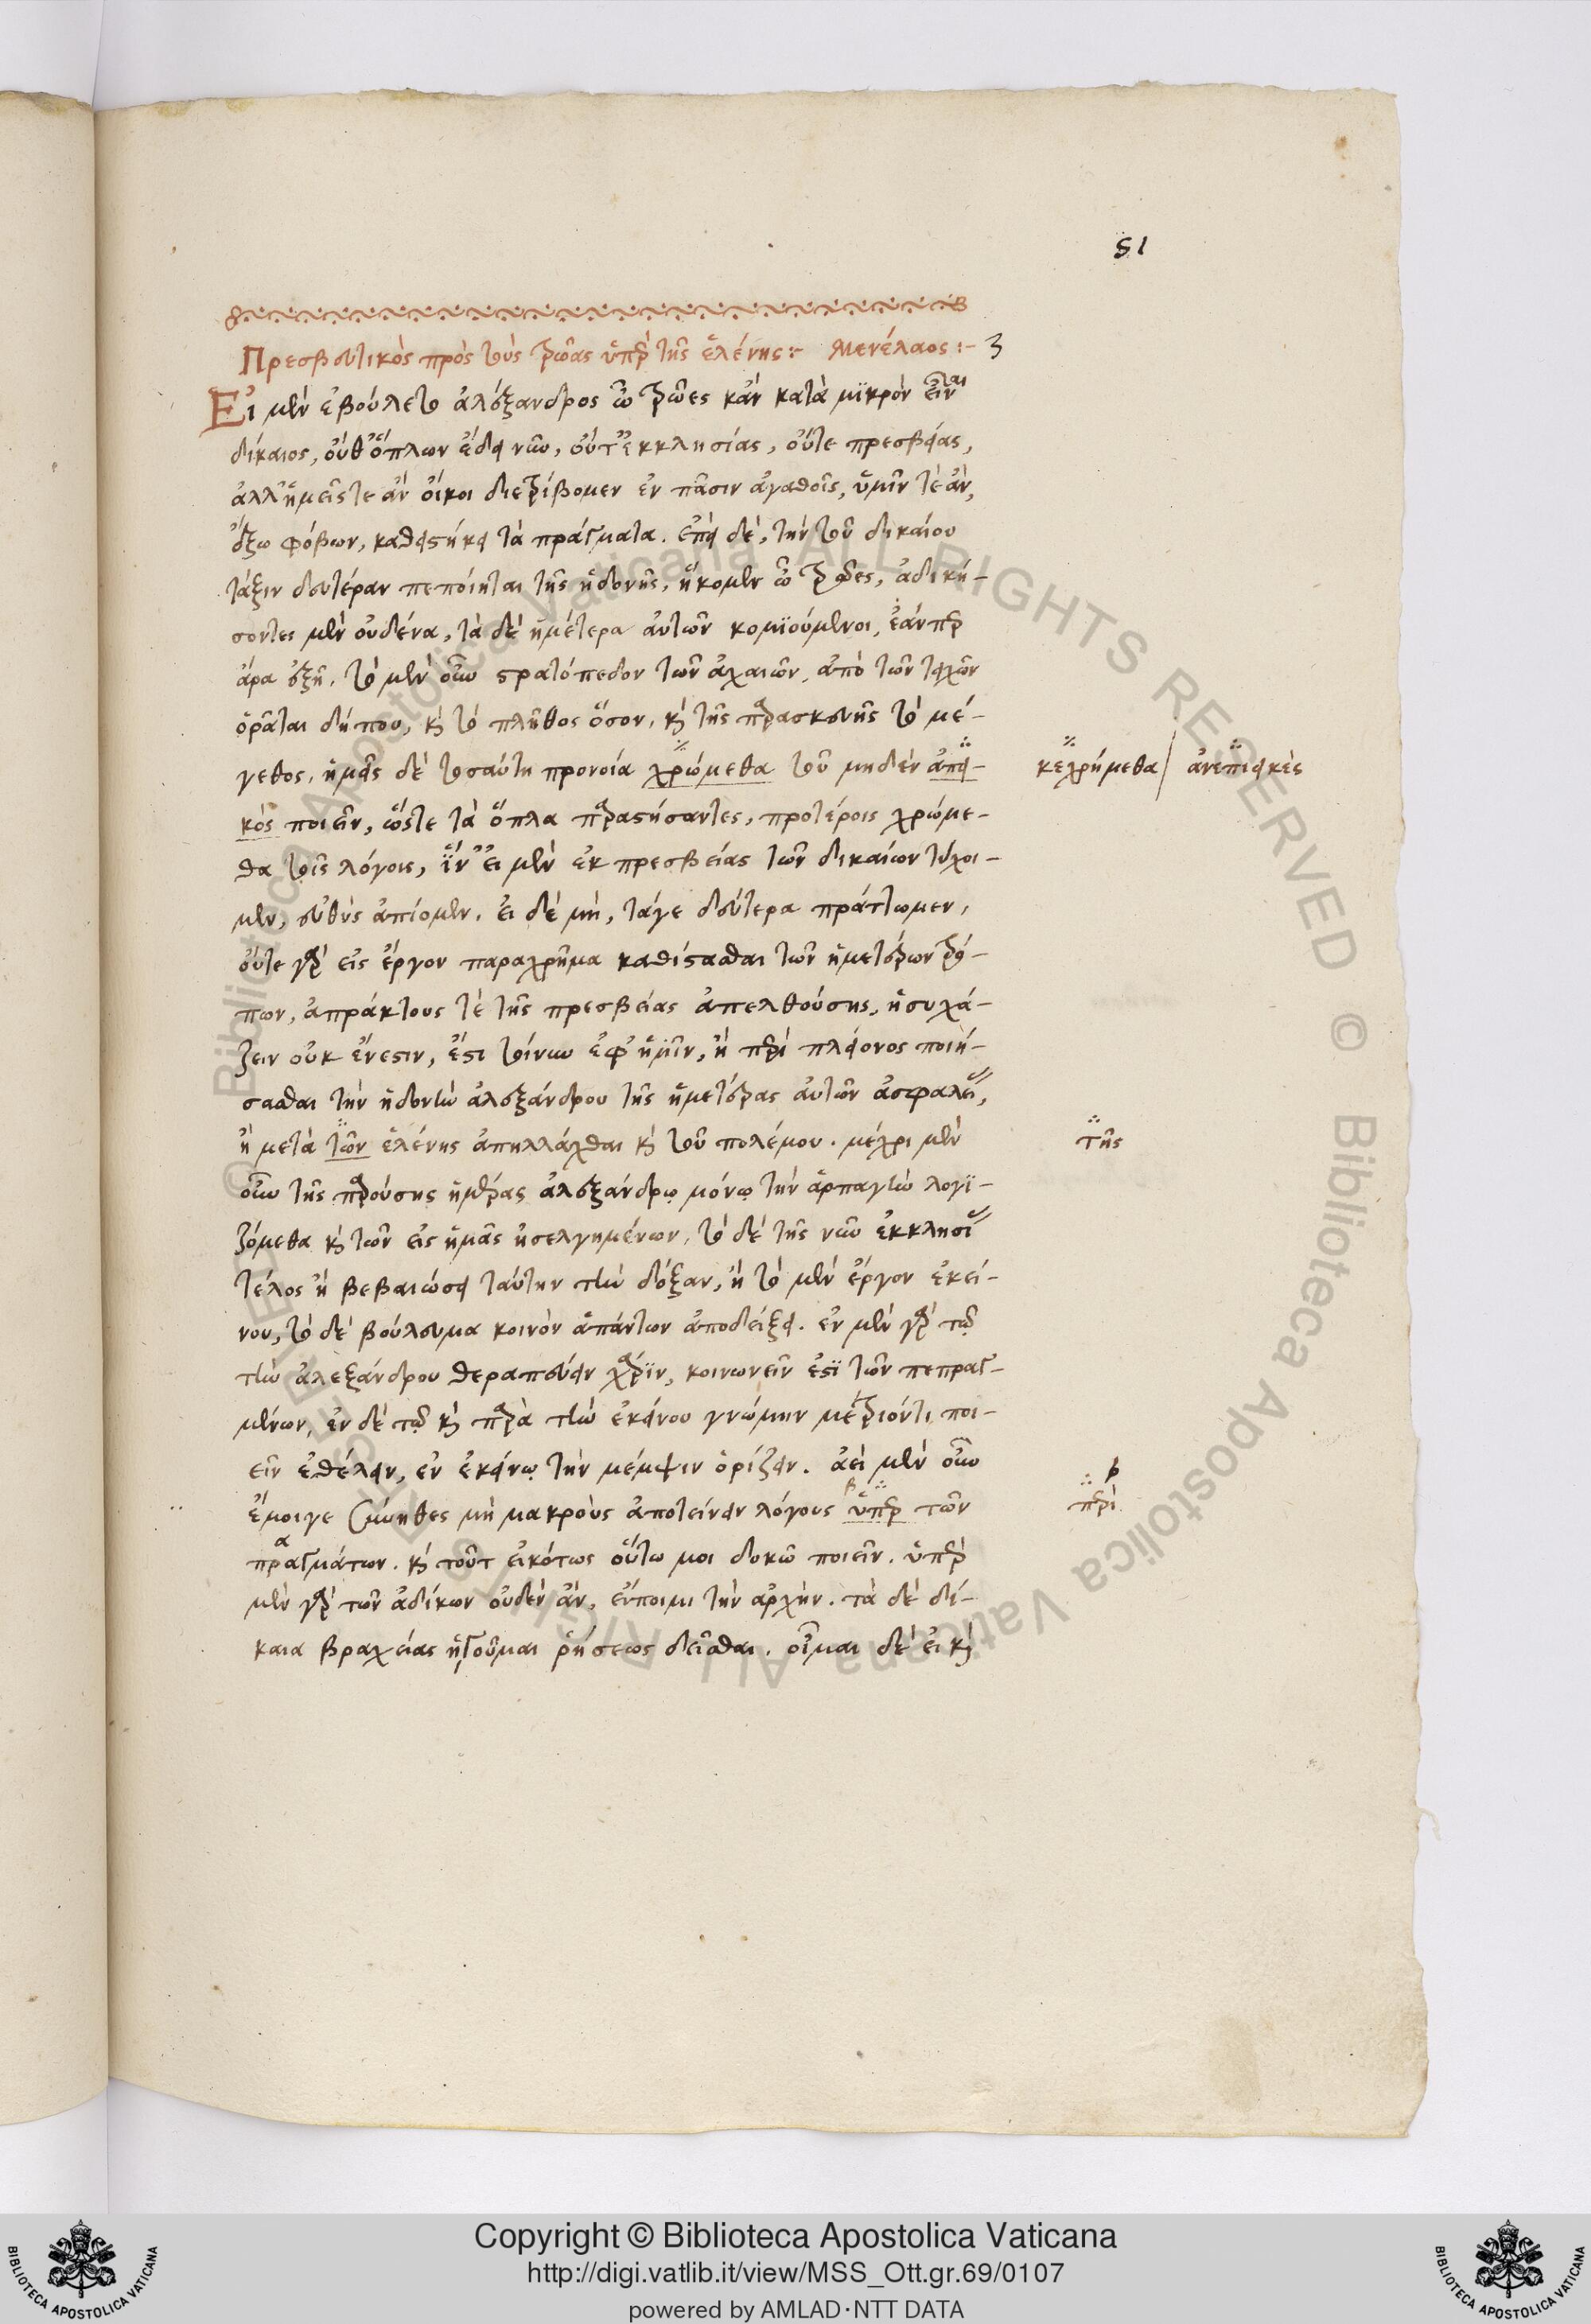 51
Πρεσβευτικὸς πρὸς τοὺς τρῶας ὑπὲρ τῆς ἑλένης :- Μενέλαος :- 3
Εἰ μὲν ἐβούλετο ἀλέξανδρος ὦ τρῶες κἂν κατὰ μϊκρὸν εἶναι
δίκαιος, οὔθ' ὅπλων ἔδει νῦν, οὔτ' ἐκκλησίας, οὔτε πρεσβείας,
ἀλλ' ἡμεῖς τε ἂν οἴκοι διετρίβομεν ἐν πᾶσιν ἀγαθοῖς, ὑμῖν τὲ ἂν,
ἔξω φόβων, καθειστήκει τὰ πράγματα. ἐπεὶ δὲ, τὴν τοῦ δικαίου
τάξιν δευτέραν πεποίηται τῆς ἡδονῆς, ἥκομεν ὦ τρῶες, ἀδική-
σοντες μὲν οὐδένα, τὰ δὲ ἡμέτερα αὐτῶν κομϊούμενοι, ἐάνπερ
ἄρα ἐξῆ. τὸ μὲν οὖν στρατόπεδον τῶν ἀχαιῶν, ἀπὸ τῶν τειχῶν
ὁρᾶται δήπου, καὶ τὸ πλῆθος ὅσον, καὶ τῆς παρασκευῆς τὸ μέ-
γεθος, ἡμεῖς δὲ τοσαύτη προνοία χρώμεθα τοῦ μηδὲν ἀπει-
κὸς ποιεῖν, ὥστε τὰ ὅπλα παραστήσαντες, προτέροις χρώμε-
θα τοῖς λόγοις, ἵν' εἰ μὲν ἐκ πρεσβείας τῶν δικαίων τύχοι-
μεν, εὐθὺς ἀπίομεν. εἰ δὲ μὴ, τάγε δεύτερα πράττωμεν,
οὔτε γὰρ εἰς ἔργον παραχρῆμα καθίστασθαι τῶν ἡμετέρων τρό-
πων, ἀπράκτους τὲ τῆς πρεσβείας ἀπελθούσης, ἡσυχά-
ζειν οὐκ ἔνεστιν, ἔστι τοίνυν ἐφ' ἡμῖν, ἢ περὶ πλείονος ποιή-
σασθαι τὴν ἡδονὴν ἀλεξάνδρου τῆς ἡμετέρας αὐτῶν ἀσφαλείας,
ἢ μετὰ τῶν ἑλένης ἀπηλλάχθαι καὶ τοῦ πολέμου. μέχρι μὲν
οὖν τῆς παρούσης ἡμέρας ἀλεξάνδρῳ μόνῳ τὴν ἁρπαγὴν λογϊ-
ζόμεθα καὶ τῶν εἰς ἡμᾶς ἠσελγημένων, τὸ δὲ τῆς νῦν ἐκκλησίας
τέλος ἢ βεβαιώσει ταύτην τὴν δόξαν, ἢ τὸ μὲν ἔργον ἐκεί-
νου, τὸ δὲ βούλευμα κοινὸν ἁπάντων ἀποδείξει. ἐν μὲν γὰρ τῷ
τὴν ἀλεξάνδρου θεραπεύειν χάρϊν, κοινωνεῖν ἐστὶ τῶν πεπραγ-
μένων, ἐν δὲ τῷ καὶ παρὰ τὴν ἐκείνου γνώμην μετριόν τι ποι-
εῖν ἐθέλειν, ἐν ἐκείνῳ τὴν μέμψιν ὁρίζειν. ἀεὶ μὲν οὖν
ἔμοιγε σύνηθες μὴ μακροὺς ἀποτείνειν λόγους ὑπὲρ τῶν
πραγμάτων. καὶ τοῦτ εἰκότως οὕτω μοι δοκῶ ποιεῖν. ὑπὲρ
μὲν γὰρ τῶν ἀδίκων οὐδὲν ἂν, εἴποιμι τὴν ἀρχὴν. τὰ δὲ δί-
καια βραχείας ἡγοῦμαι ῥήσεως δεῖσθαι. οἶμαι δὲ εἰ καὶ
κεχρήμεθα / ἀνεπιεικὲς
τῆς
περὶ
Copyright © Biblioteca Apostolica Vaticana
http://digi.vatlib.it/view/MSS_Ott.gr.69/0107
powered by AMLAD·NTT DATA
BIBLIOTECA APOSTOLICA VATICANA
BIBLIOTECA APOSTOLICA VATICANA
© Biblioteca Apostolica Vaticana ALL RIGHTS RESERVED © Biblioteca Apostolica Vaticana ALL RIGHTS RESERVED